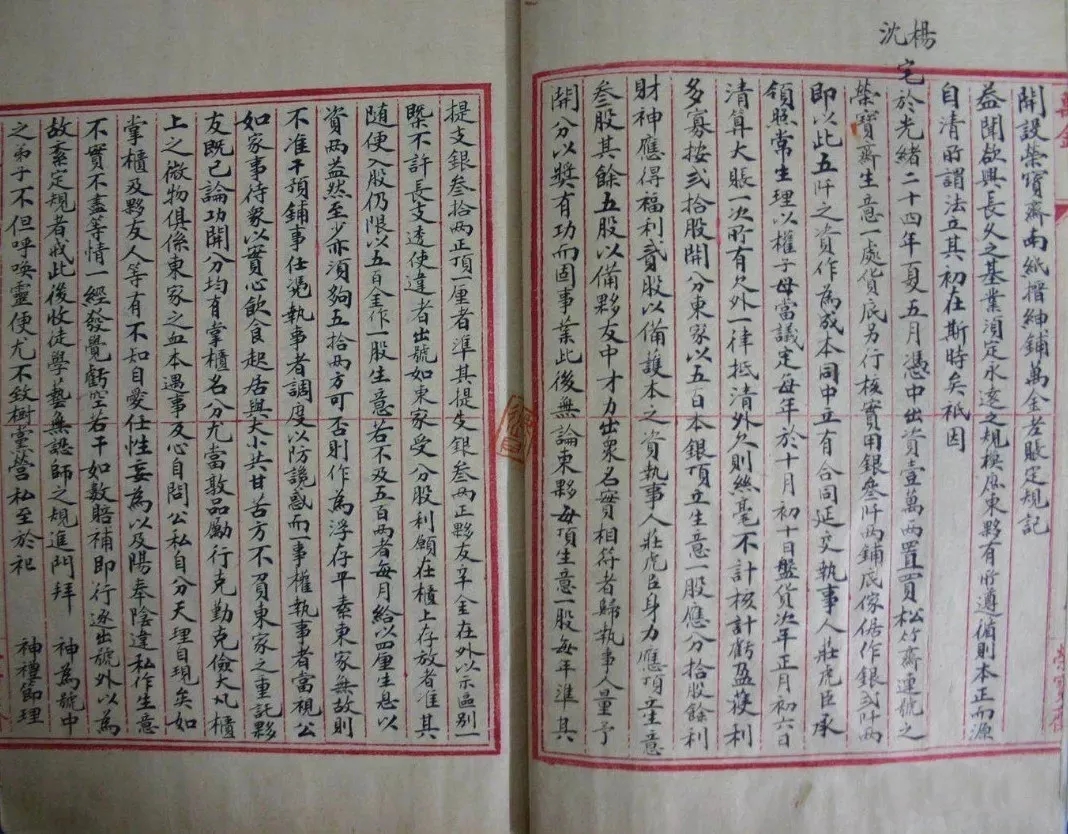 開設榮寶齋南紙搢紳鋪萬金老賬定規記
益聞欲興長久之基業須定永遠之規模庶東夥有所遵循則本正而源
自清所謂法立其初在斯時矣祇因
楊
沈
宅於光緒二十四年夏五月憑中出資壹萬兩置買松竹齋連號之
榮寶齋生意一處貨底另行核實用銀叁阡兩鋪底傢俱作銀弍阡兩
即以此五阡之資作為成本同中立有合同延交執事人莊虎臣承
領照常生理以權子母當議定每年於十月初十日盤貨次年正月初六日
清算大賬一次所有欠外一律抵清外欠則絲毫不計核計虧盈獲利
多寡按弍拾股開分東家以五百本銀頂立生意一股應分拾股餘利
財神應得福利貳股以備護本之資執事人莊虎臣身力應頂立生意
叁股其餘五股以備夥友中才力出眾名實相符者歸執事人量予
開分以獎有功而固事業此後無論東夥每頂生意一股每年準其
提支銀叁拾兩正頂一厘者準其提支銀叁兩正夥友辛金在外以示區別一
槩不許長支透使違者出號如東家受分股利願在櫃上存放者准其
隨便入股仍限以五百金作一股生意若不及五百兩者每月給以四厘生息以
資兩益然至少亦須夠五拾兩方可否則作為浮存平素東家無故則
不准干預鋪事任凴執事者調度以防譏惑而一事權執事者當視公
如家事待眾以實心飲食起居與大小共甘苦方不負東家之重託夥
友既已論功開分均有掌櫃名分尤當敦品勵行克勤克儉大凡櫃
上之微物俱係東家之血本遇事及心自問公私自分天理自現矣如
掌櫃及夥友人等有不知自愛任性妄為以及陽奉陰違私作生意
不實不盡等情一經發覺虧空若干如數賠補即行逐出號外以為
故紊定規者戒此後收徒學藝無認師之規進門拜　神為號中
之弟子不但呼喚靈便尤不致樹黨營私至於祀　神禮節理